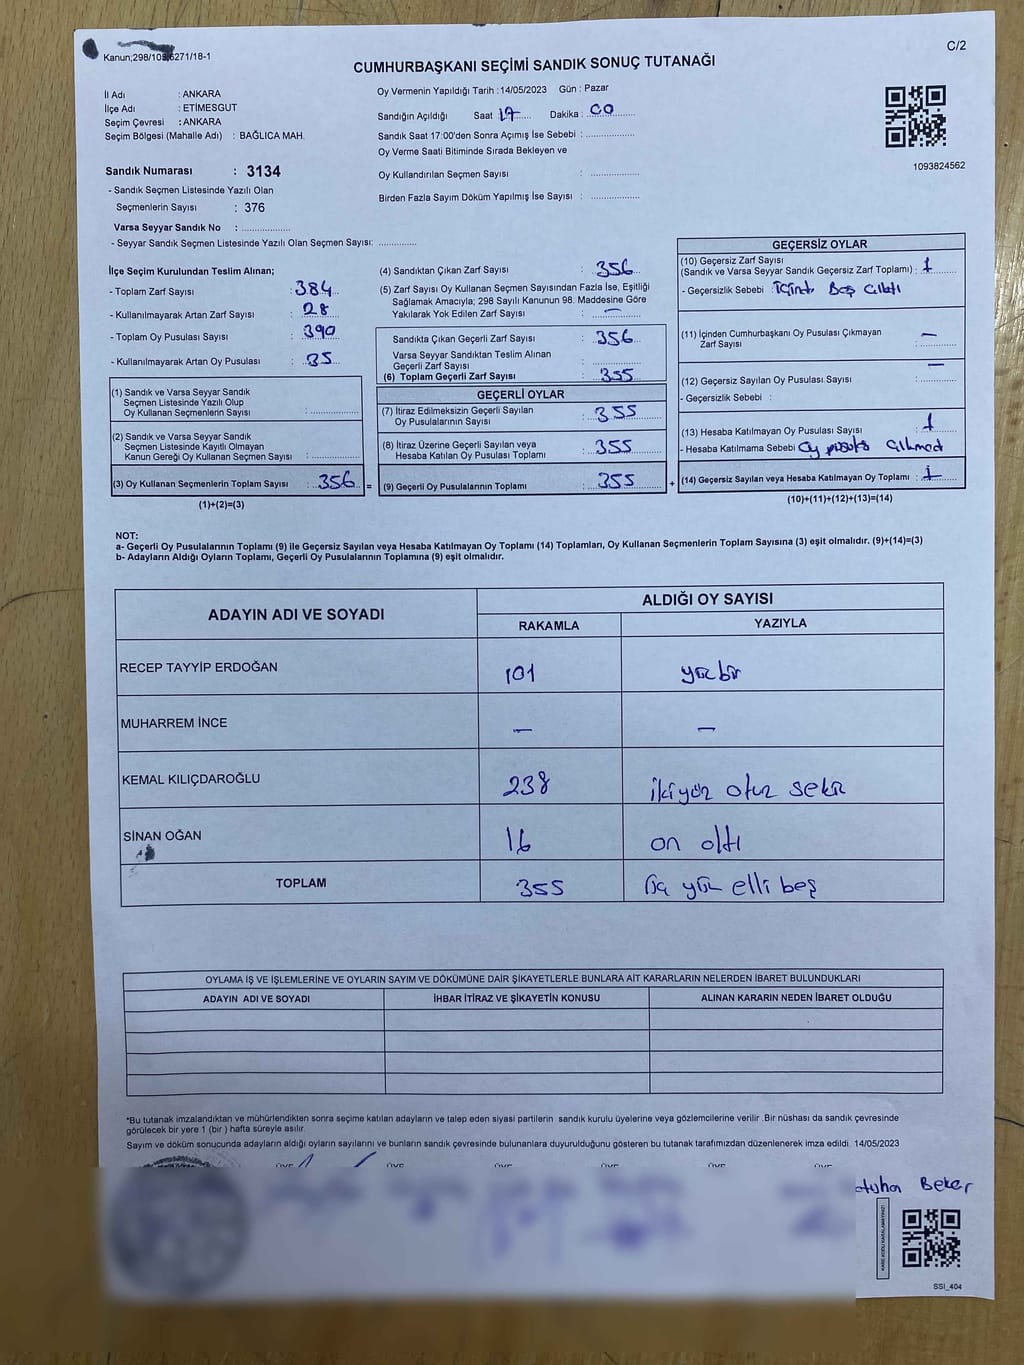 Kanun;298/105,6271/18-1
C/2
CUMHURBAŞKANI SEÇİMİ SANDIK SONUÇ TUTANAĞI
İl Adı : ANKARA
İlçe Adı : ETİMESGUT
Seçim Çevresi : ANKARA
Seçim Bölgesi (Mahalle Adı) : BAĞLICA MAH.
Sandık Numarası : 3134
- Sandık Seçmen Listesinde Yazılı Olan
Seçmenlerin Sayısı : 376
Varsa Seyyar Sandık No : ..................
- Seyyar Sandık Seçmen Listesinde Yazılı Olan Seçmen Sayısı: ..............
Oy Vermenin Yapıldığı Tarih :14/05/2023 Gün : Pazar
Sandığın Açıldığı Saat 17 Dakika : 00
Sandık Saat 17:00'den Sonra Açımış İse Sebebi : ..................
Oy Verme Saati Bitiminde Sırada Bekleyen ve
Oy Kullandırılan Seçmen Sayısı : ..................
Birden Fazla Sayım Döküm Yapılmış İse Sayısı : ..................
1093824562
İlçe Seçim Kurulundan Teslim Alınan;
- Toplam Zarf Sayısı : 384
- Kullanılmayarak Artan Zarf Sayısı : 28
- Toplam Oy Pusulası Sayısı : 390
- Kullanılmayarak Artan Oy Pusulası : 35
(1) Sandık ve Varsa Seyyar Sandık
Seçmen Listesinde Yazılı Olup
Oy Kullanan Seçmenlerin Sayısı : ..................
(2) Sandık ve Varsa Seyyar Sandık
Seçmen Listesinde Kayıtlı Olmayan
Kanun Gereği Oy Kullanan Seçmen Sayısı : ..................
(3) Oy Kullanan Seçmenlerin Toplam Sayısı : 356 =
(1)+(2)=(3)
(4) Sandıktan Çıkan Zarf Sayısı : 356
(5) Zarf Sayısı Oy Kullanan Seçmen Sayısından Fazla İse, Eşitliği
Sağlamak Amacıyla; 298 Sayılı Kanunun 98. Maddesine Göre
Yakılarak Yok Edilen Zarf Sayısı : —
Sandıkta Çıkan Geçerli Zarf Sayısı : 356
Varsa Seyyar Sandıktan Teslim Alınan
Geçerli Zarf Sayısı : ..................
(6) Toplam Geçerli Zarf Sayısı : 355
GEÇERLİ OYLAR
(7) İtiraz Edilmeksizin Geçerli Sayılan
Oy Pusulalarının Sayısı : 355
(8) İtiraz Üzerine Geçerli Sayılan veya
Hesaba Katılan Oy Pusulası Toplamı : 355
(9) Geçerli Oy Pusulalarının Toplamı : 355 +
GEÇERSİZ OYLAR
(10) Geçersiz Zarf Sayısı
(Sandık ve Varsa Seyyar Sandık Geçersiz Zarf Toplamı) : 1
- Geçersizlik Sebebi : İçinde Boş Çıktı
(11) İçinden Cumhurbaşkanı Oy Pusulası Çıkmayan
Zarf Sayısı : —
(12) Geçersiz Sayılan Oy Pusulası Sayısı : —
- Geçersizlik Sebebi :
(13) Hesaba Katılmayan Oy Pusulası Sayısı : 1
- Hesaba Katılmama Sebebi : Oy pusula çıkmadı
(14) Geçersiz Sayılan veya Hesaba Katılmayan Oy Toplamı : 1
(10)+(11)+(12)+(13)=(14)
NOT:
a- Geçerli Oy Pusulalarının Toplamı (9) ile Geçersiz Sayılan veya Hesaba Katılmayan Oy Toplamı (14) Toplamları, Oy Kullanan Seçmenlerin Toplam Sayısına (3) eşit olmalıdır. (9)+(14)=(3)
b- Adayların Aldığı Oyların Toplamı, Geçerli Oy Pusulalarının Toplamına (9) eşit olmalıdır.
ADAYIN ADI VE SOYADI
ALDIĞI OY SAYISI
RAKAMLA YAZIYLA
RECEP TAYYİP ERDOĞAN 101 yüz bir
MUHARREM İNCE — —
KEMAL KILIÇDAROĞLU 238 ikiyüz otuz sekiz
SİNAN OĞAN 16 on altı
TOPLAM 355 üç yüz elli beş
OYLAMA İŞ VE İŞLEMLERİNE VE OYLARIN SAYIM VE DÖKÜMÜNE DAİR ŞİKAYETLERLE BUNLARA AİT KARARLARIN NELERDEN İBARET BULUNDUKLARI
ADAYIN ADI VE SOYADI İHBAR İTİRAZ VE ŞİKAYETİN KONUSU ALINAN KARARIN NEDEN İBARET OLDUĞU
*Bu tutanak imzalandıktan ve mühürlendikten sonra seçime katılan adayların ve talep eden siyasi partilerin sandık kurulu üyelerine veya gözlemcilerine verilir .Bir nüshası da sandık çevresinde
görülecek bir yere 1 (bir ) hafta süreyle asılır.
Sayım ve döküm sonucunda adayların aldığı oyların sayılarını ve bunların sandık çevresinde bulunanlara duyurulduğunu gösteren bu tutanak tarafımızdan düzenlenerek imza edildi. 14/05/2023
ÜYE ÜYE ÜYE ÜYE ÜYE ÜYE
Beker
SSİ_404